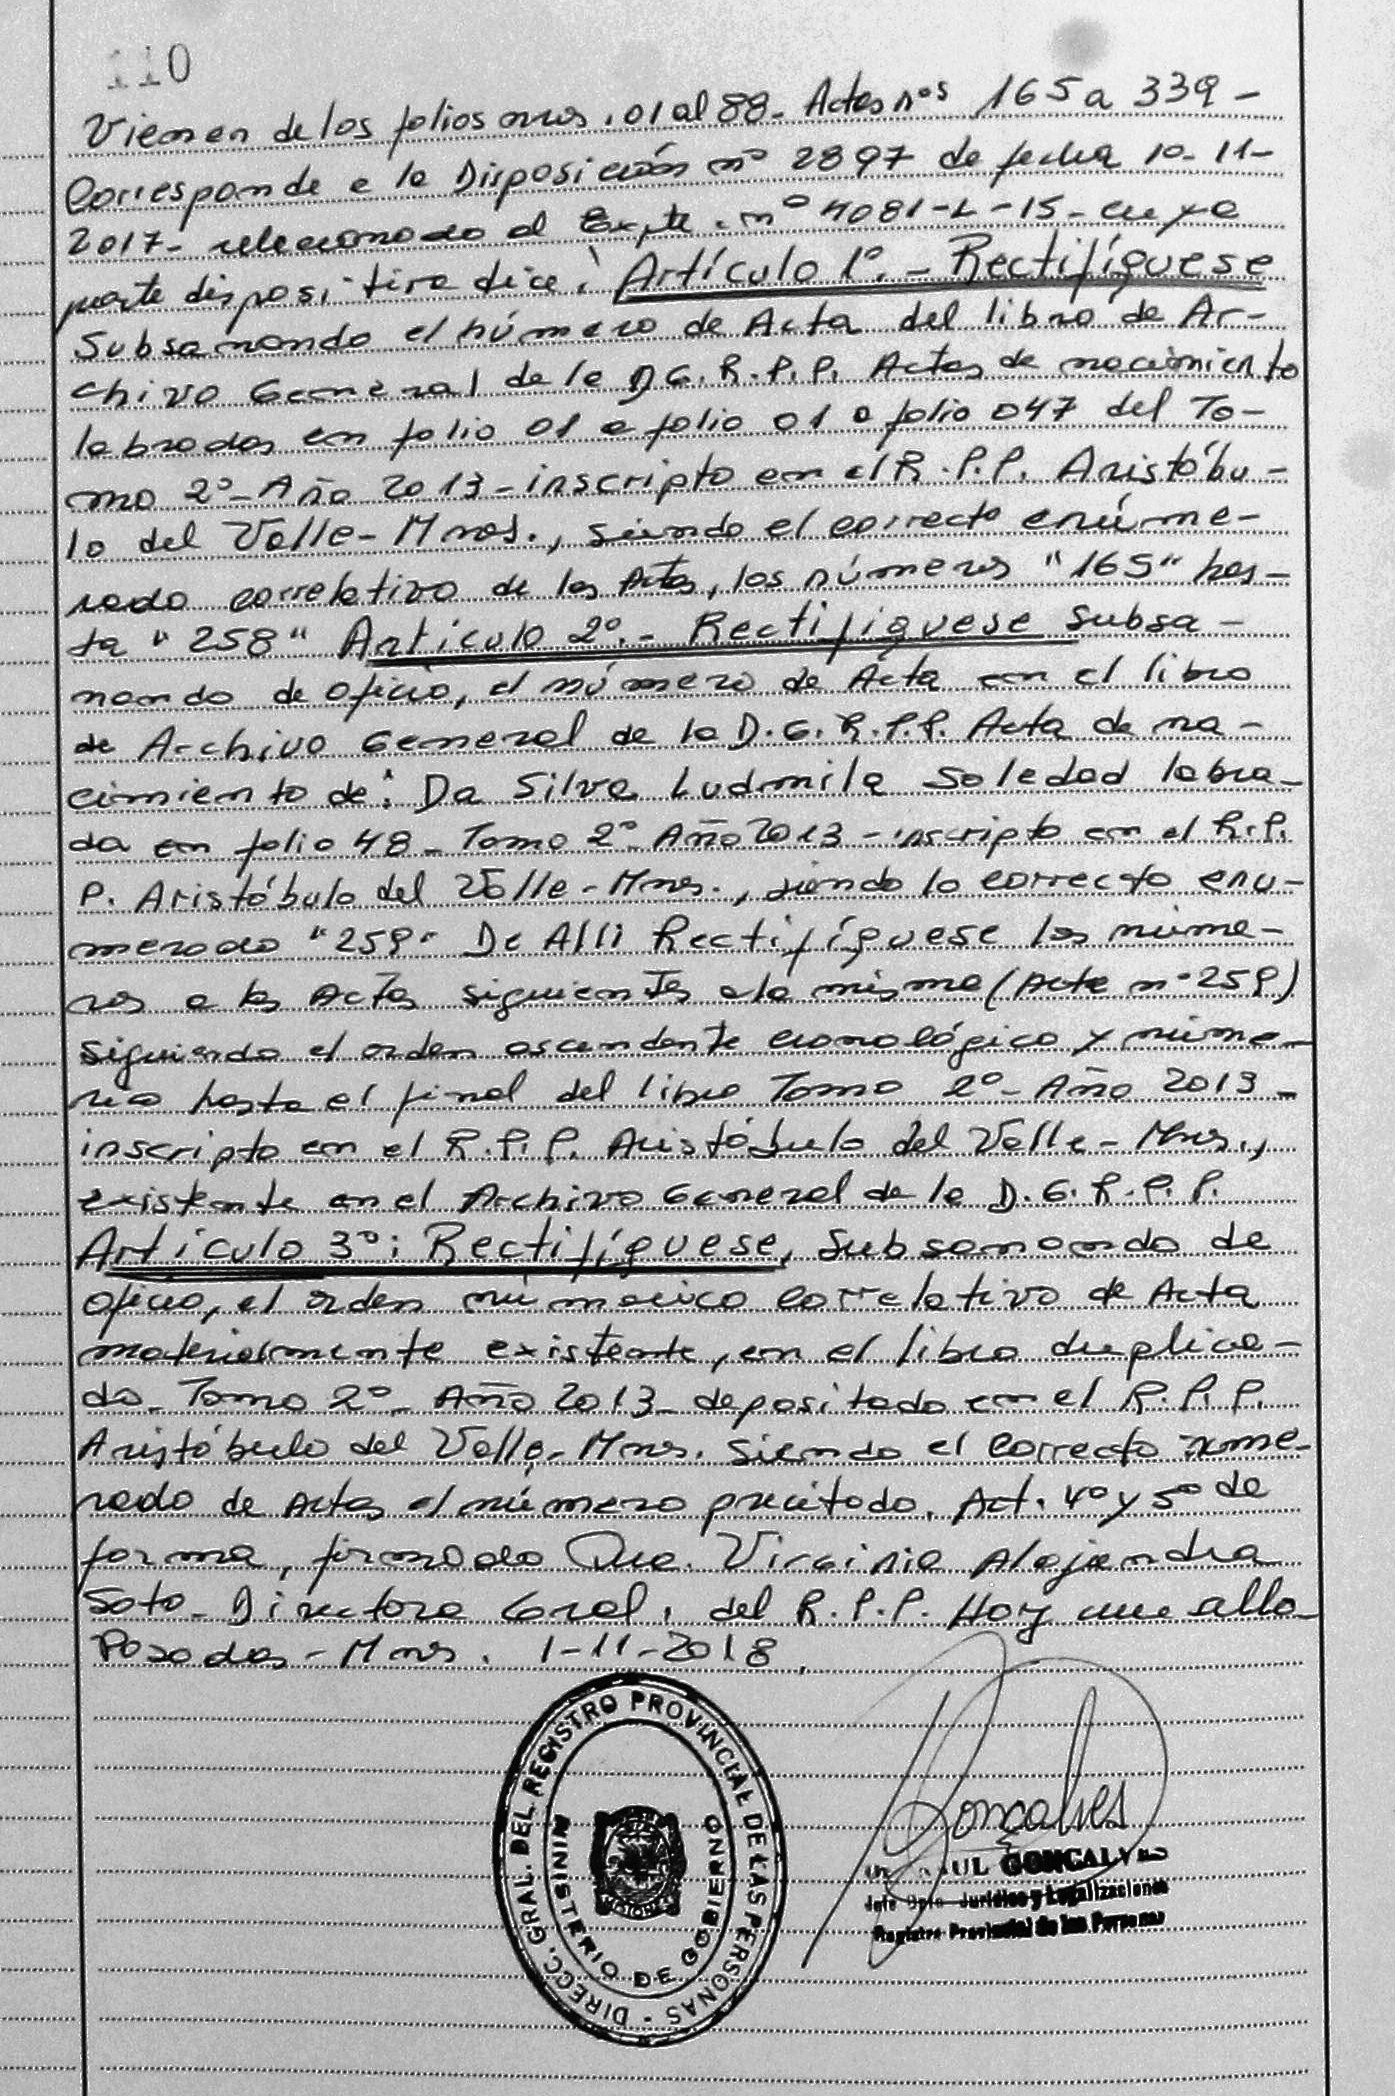 110
Vienen de los folios nros. 01 al 88- Actas nos 165 a 339-
Corresponde a la Disposición nº 2897 de fecha 10-11-
2017- relacionado al Expte. nº 4081-L-15- cuya
parte dispositiva dice: Artículo 1º.- Rectifíquese
Subsanando el número de Acta del libro de Ar-
chivo General de la D.G.R.P.P. Actas de nacimiento
labradas en folio 01 a folio 01 a folio 047 del To-
mo 2º- Año 2013- inscripto en el R.P.P. Aristóbu-
lo del Valle- Mnes., siendo el correcto enúme-
rado correlativo de las Actas, los números "165" has-
ta "258" Artículo 2º.- Rectifíquese subsa-
nando de oficio, el número de Acta en el libro
de Archivo General de la D.G.R.P.P. Acta de na-
cimiento de: Da Silva Ludmila Soledad labra-
da en folio 48- Tomo 2º- Año 2013- inscripto en el R.P.
P. Aristóbulo del Valle- Mnes., siendo lo correcto enu-
merado "259" De Allí Rectifíquese los núme-
ros a las Actas siguientes a la misma (Acta nº 259)
siguiendo el orden ascendente cronológico y núme-
rico hasta el final del libro Tomo 2º- Año 2013-
inscripto en el R.P.P. Aristóbulo del Valle- Mnes.,
existente en el Archivo General de la D.G.R.P.P.
Artículo 3º: Rectifíquese, Subsanando de
oficio, el orden númerico correlativo de Acta
materialmente existente, en el libro duplica-
do- Tomo 2º- Año 2013- depositado en el R.P.P.
Aristóbulo del Valle- Mnes. Siendo el correcto nume-
rado de Actas el número precitado. Art. 4º y 5º de
forma, firmado Dra. Virginia Alejandra
Soto- Directora Gral. del R.P.P. Hoy
Posadas- Mnes. 1-11-2018.
DIRECC. GRAL. DEL REGISTRO PROVINCIAL DE LAS PERSONAS -
MINISTERIO DE GOBIERNO
MISIONES
Goncalves
RAUL GONCALVES
Jefe Dpto. Jurídico y Legalizaciones
Registro Provincial de las Personas